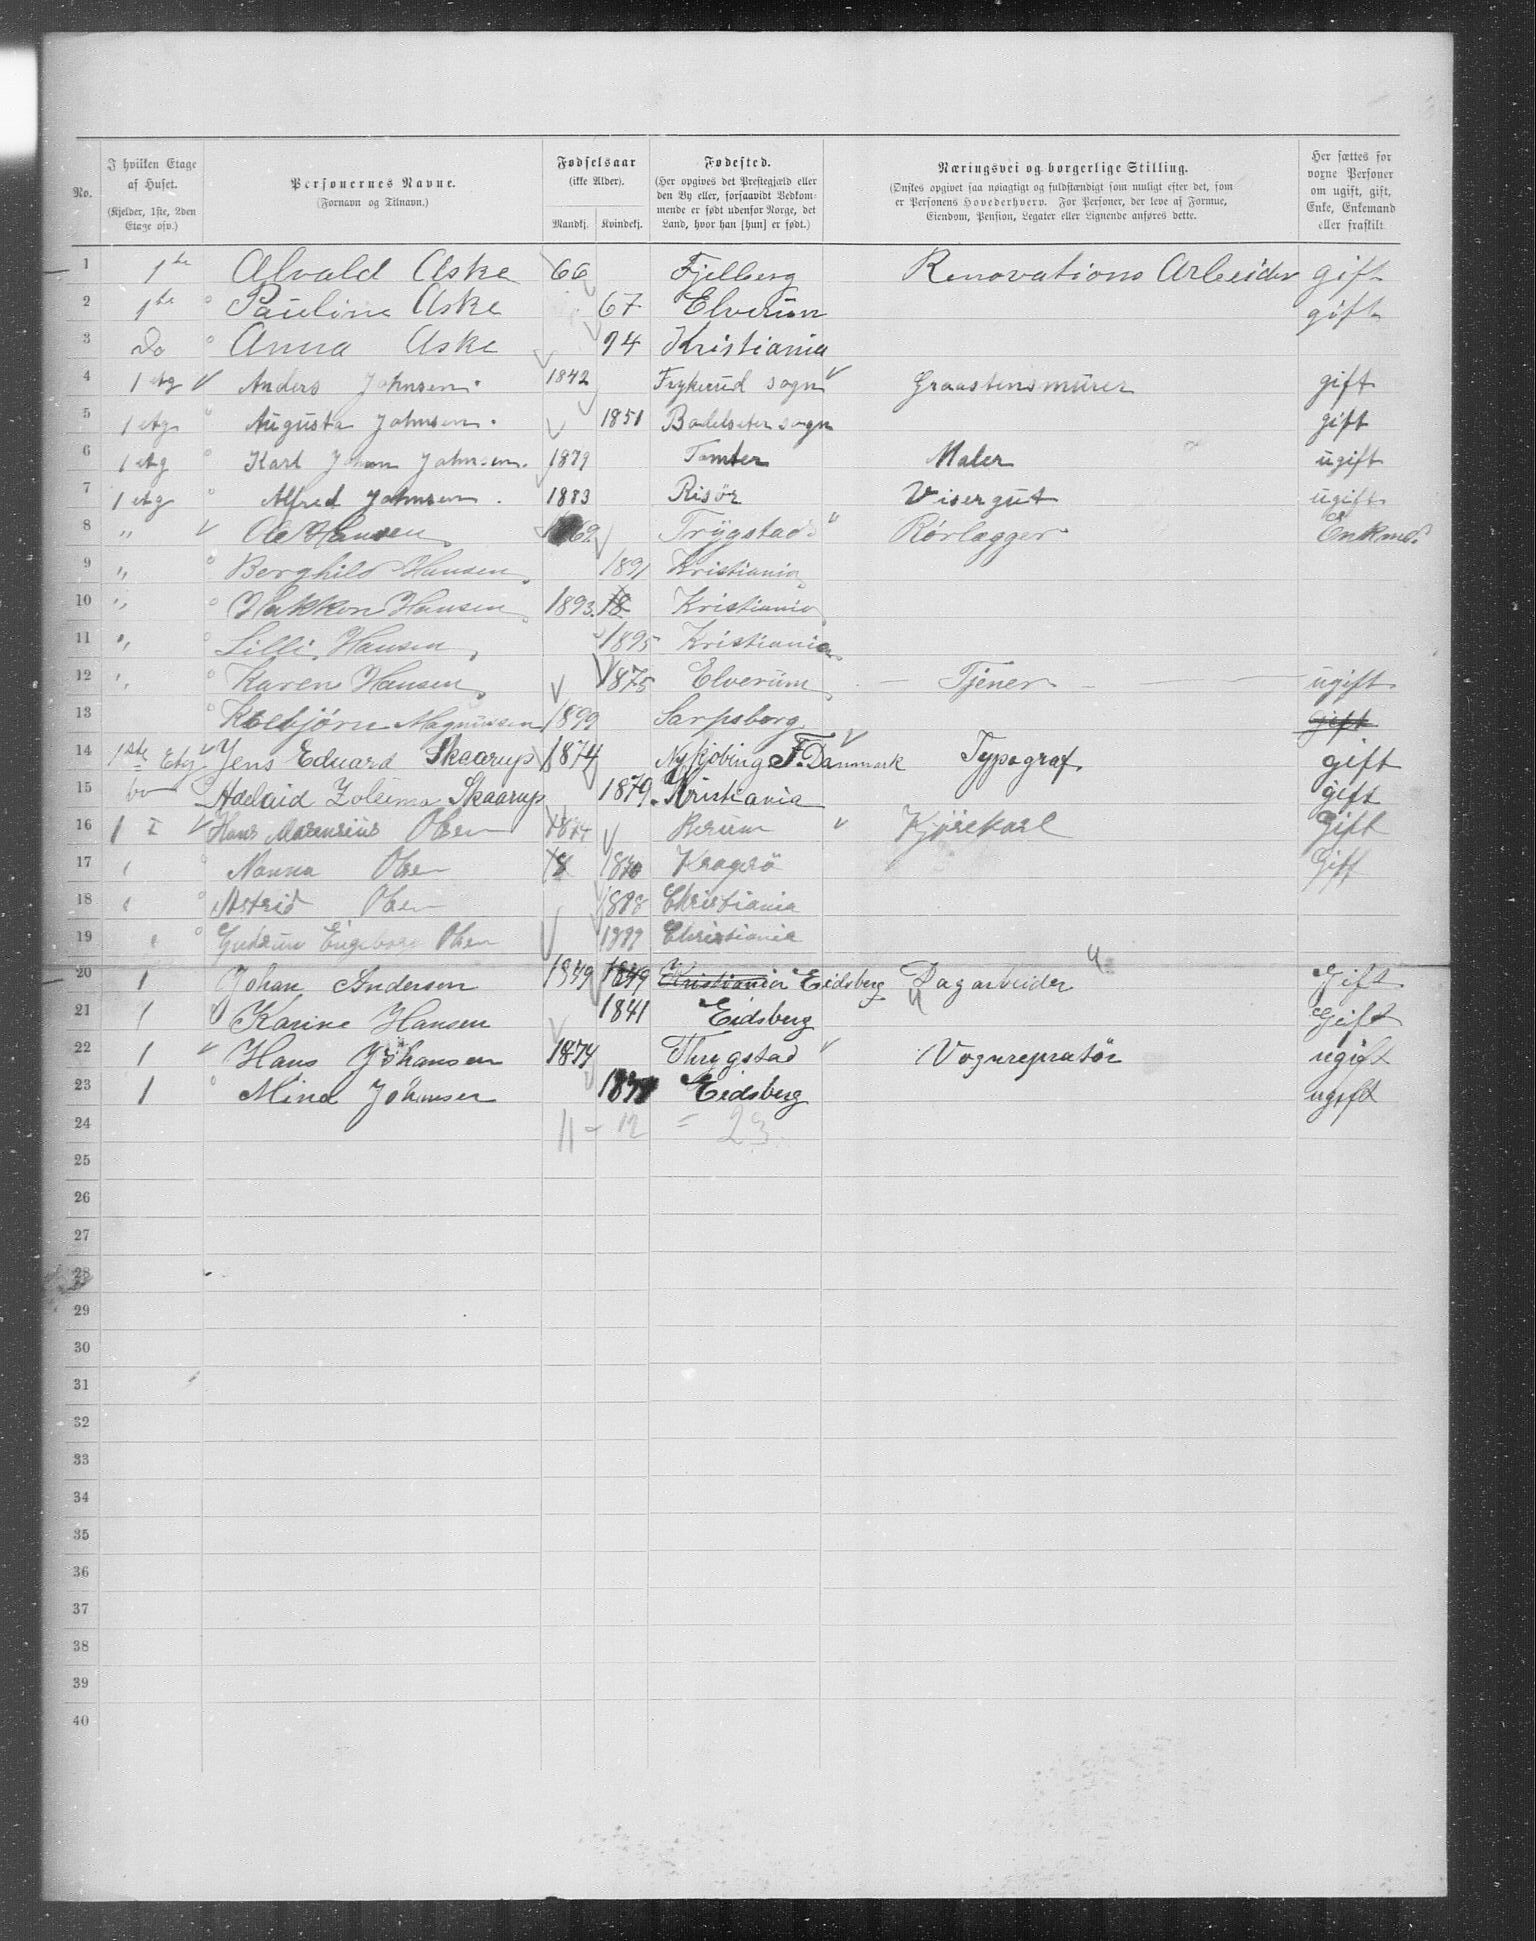 No. | I hvilken Etage af Huset. (Kjelder, 1ste, 2den Etage osv.) | Personernes Navne. (Fornavn og Tilnavn.) | Fødselsaar (ikke Alder). Mandkj. | Kvindekj. | Fødested. (Her opgives det Prestegjæld eller den By eller, forsaavidt Vedkommende er født udenfor Norge, det Land, hvor han [hun] er født.) | Næringsvei og borgerlige Stilling. (Ønskes opgivet saa nøiagtigt og fuldstændigt som muligt efter det, som er Personens Hovederhverv. For Personer, der leve af Formue, Eiendom, Pension, Legater eller Lignende anføres dette. | Her sættes for voxne Personer om ugift, gift, Enke, Enkemand eller fraskilt.
1 1ste Alvald Aske 66 Fjelberg Renovations Arbeider gift
2 1ste Pauline Aske 67 Elverum gift
3 Do Anna Aske 94 Kristiania
4 1 etg Anders Johnsen. 1842 Frykerud sogn Graastensmurer gift
5 1 etg Augusta Johnsen. 1851 sogn gift
6 1 etg Karl Johan Johnsen. 1879 Tomter Maler ugift
7 1 etg Alfred Johnsen. 1883 Risør Visergut ugift
8 " Ole Hansen 69 Trygstad Rørlægger Enkmd.
9 " Borghild Hansen 1891 Kristiania
10 " Hakkon Hansen 1893. 18 Kristiania
11 " Lilli Hansen 1895 Kristiania
12 " Karen Hansen 1875 Elverum Tjener ugift
13 Magnussen 1899 Sarpsborg gift
14 1ste Etg Jens Eduard Skaarup 1874 Nykjøbing F. Danmark Typograf gift
15 Do Adelaid Skaarup 1879. Kristiania gift
16 1 I Hans Olsen 1874 Berum Kjørekarl gift
17 Nanna Olsen 18 1870 Kragerö Gift
18 Astrid Olsen 1898 Christiania
19 Gudrun Engeborg Olsen 1899 Christiania
20 1 Johan Andersen 1849 1849 Kristiania Eidsberg Dagarbeider Gift
21 1 Karine Hansen 1841 Eidsberg Geift
22 1 Hans Johansen 1874 Thrygstad Vognrepratör ugift
23 1 Mina Johansen Eidsberg ugift
24 11 - 12 = 23.
25
26
27
28
29
30
31
32
33
34
35
36
37
38
39
40